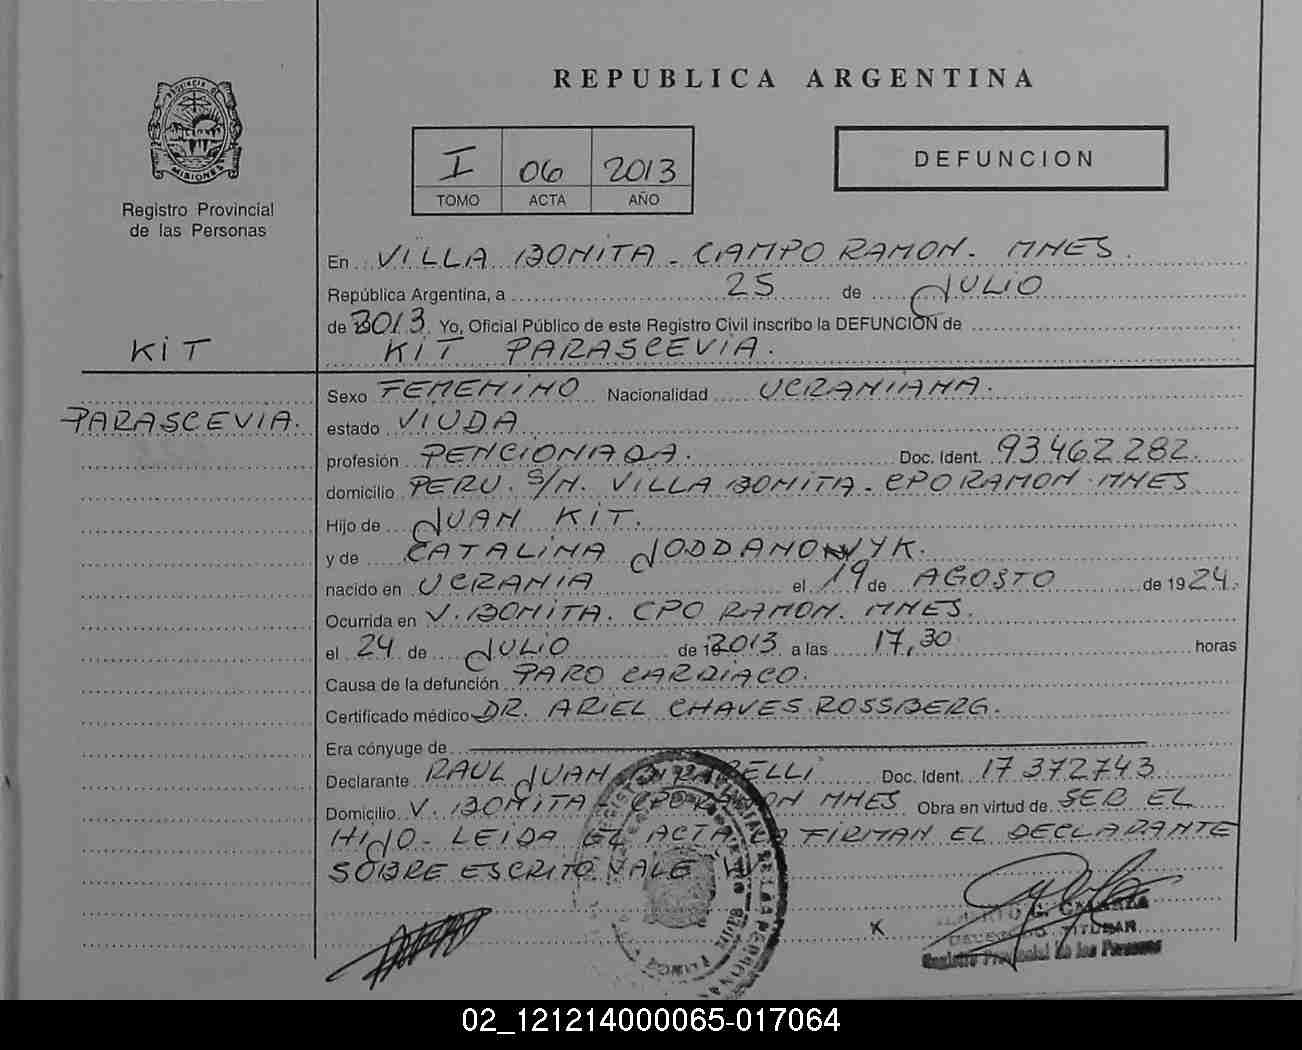 REPUBLICA ARGENTINA
PROVINCIA DE
MISIONES
Registro Provincial
de las Personas
I 06 2013
TOMO ACTA AÑO
DEFUNCION
En VILLA BONITA - CAMPO RAMON - MNES.
República Argentina, a 25 de JULIO
de 2013. Yo, Oficial Público de este Registro Civil inscribo la DEFUNCION de
KIT PARASCEVIA.
KIT
PARASCEVIA.
Sexo FEMENINO Nacionalidad UCRANIANA.
estado VIUDA
profesión PENCIONADA. Doc. Ident. 93462282.
domicilio PERU. S/N. VILLA BONITA - CPO RAMON - MNES
Hijo de JUAN KIT.
y de CATALINA JODDANOWYK.
nacido en UCRANIA el 19 de AGOSTO de 1924.
Ocurrida en V. BONITA. CPO RAMON. MNES.
el 24 de JULIO de 2013 a las 17,30 horas
Causa de la defunción PARO CARDIACO.
Certificado médico DR. ARIEL CHAVES ROSSBERG.
Era cónyuge de
Declarante RAUL JUAN Doc. Ident. 17372743
Domicilio V. BONITA - CPO RAMON MNES Obra en virtud de SER EL
HIJO - LEIDA EL ACTA FIRMAN EL DECLARANTE
SOBRE ESCRITO VALE W
X
G.
TITULAR
Registro Provincial de las Personas
02_121214000065-017064